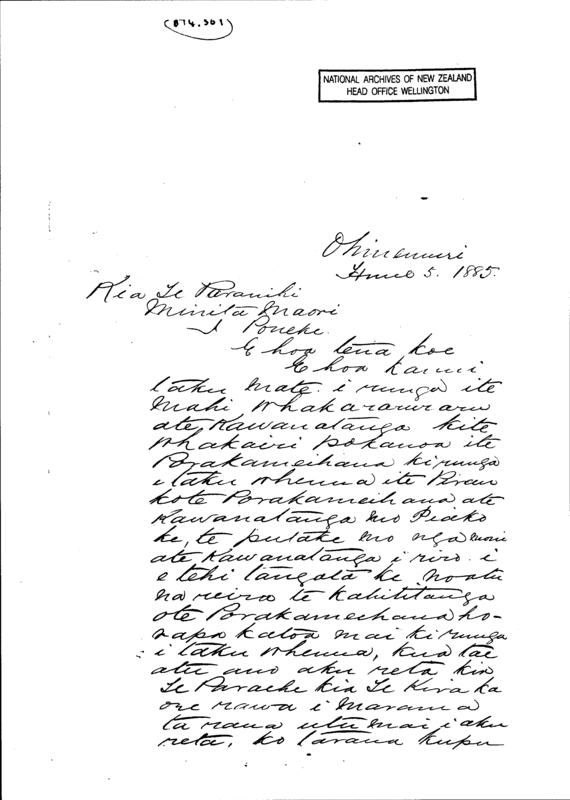 (874.501)
NATIONAL ARCHIVES OF NEW ZEALAND
HEAD OFFICE WELLINGTON
Ohinemuri
Hune 5. 1885.
Kia Te Paranihi
Minita Maori
I Poneke.
E hoa tena koe
E hoa ka nui
taku mate. i runga ite
mahi whakararuraru
ate Kawanatanga kite
whakairi pokanoa ite
Porakameihana ki runga
i taku whenua ite Pirau
kote Porakameihana ate
Kawanatanga mo Piako
ke, te putake mo nga moni
ate Kawanatanga i riro. i
e tehi tangata ke noatu
na reira te kahititanga
ote Porakameihana ho-
rapa katoa mai ki runga
i taku whenua, kua tae
atu ano aku reta kia
Te Paraehe kia Te Kira ka
ore rawa i marama
ta raua utu mai i aku
reta, ko ta raua kupu